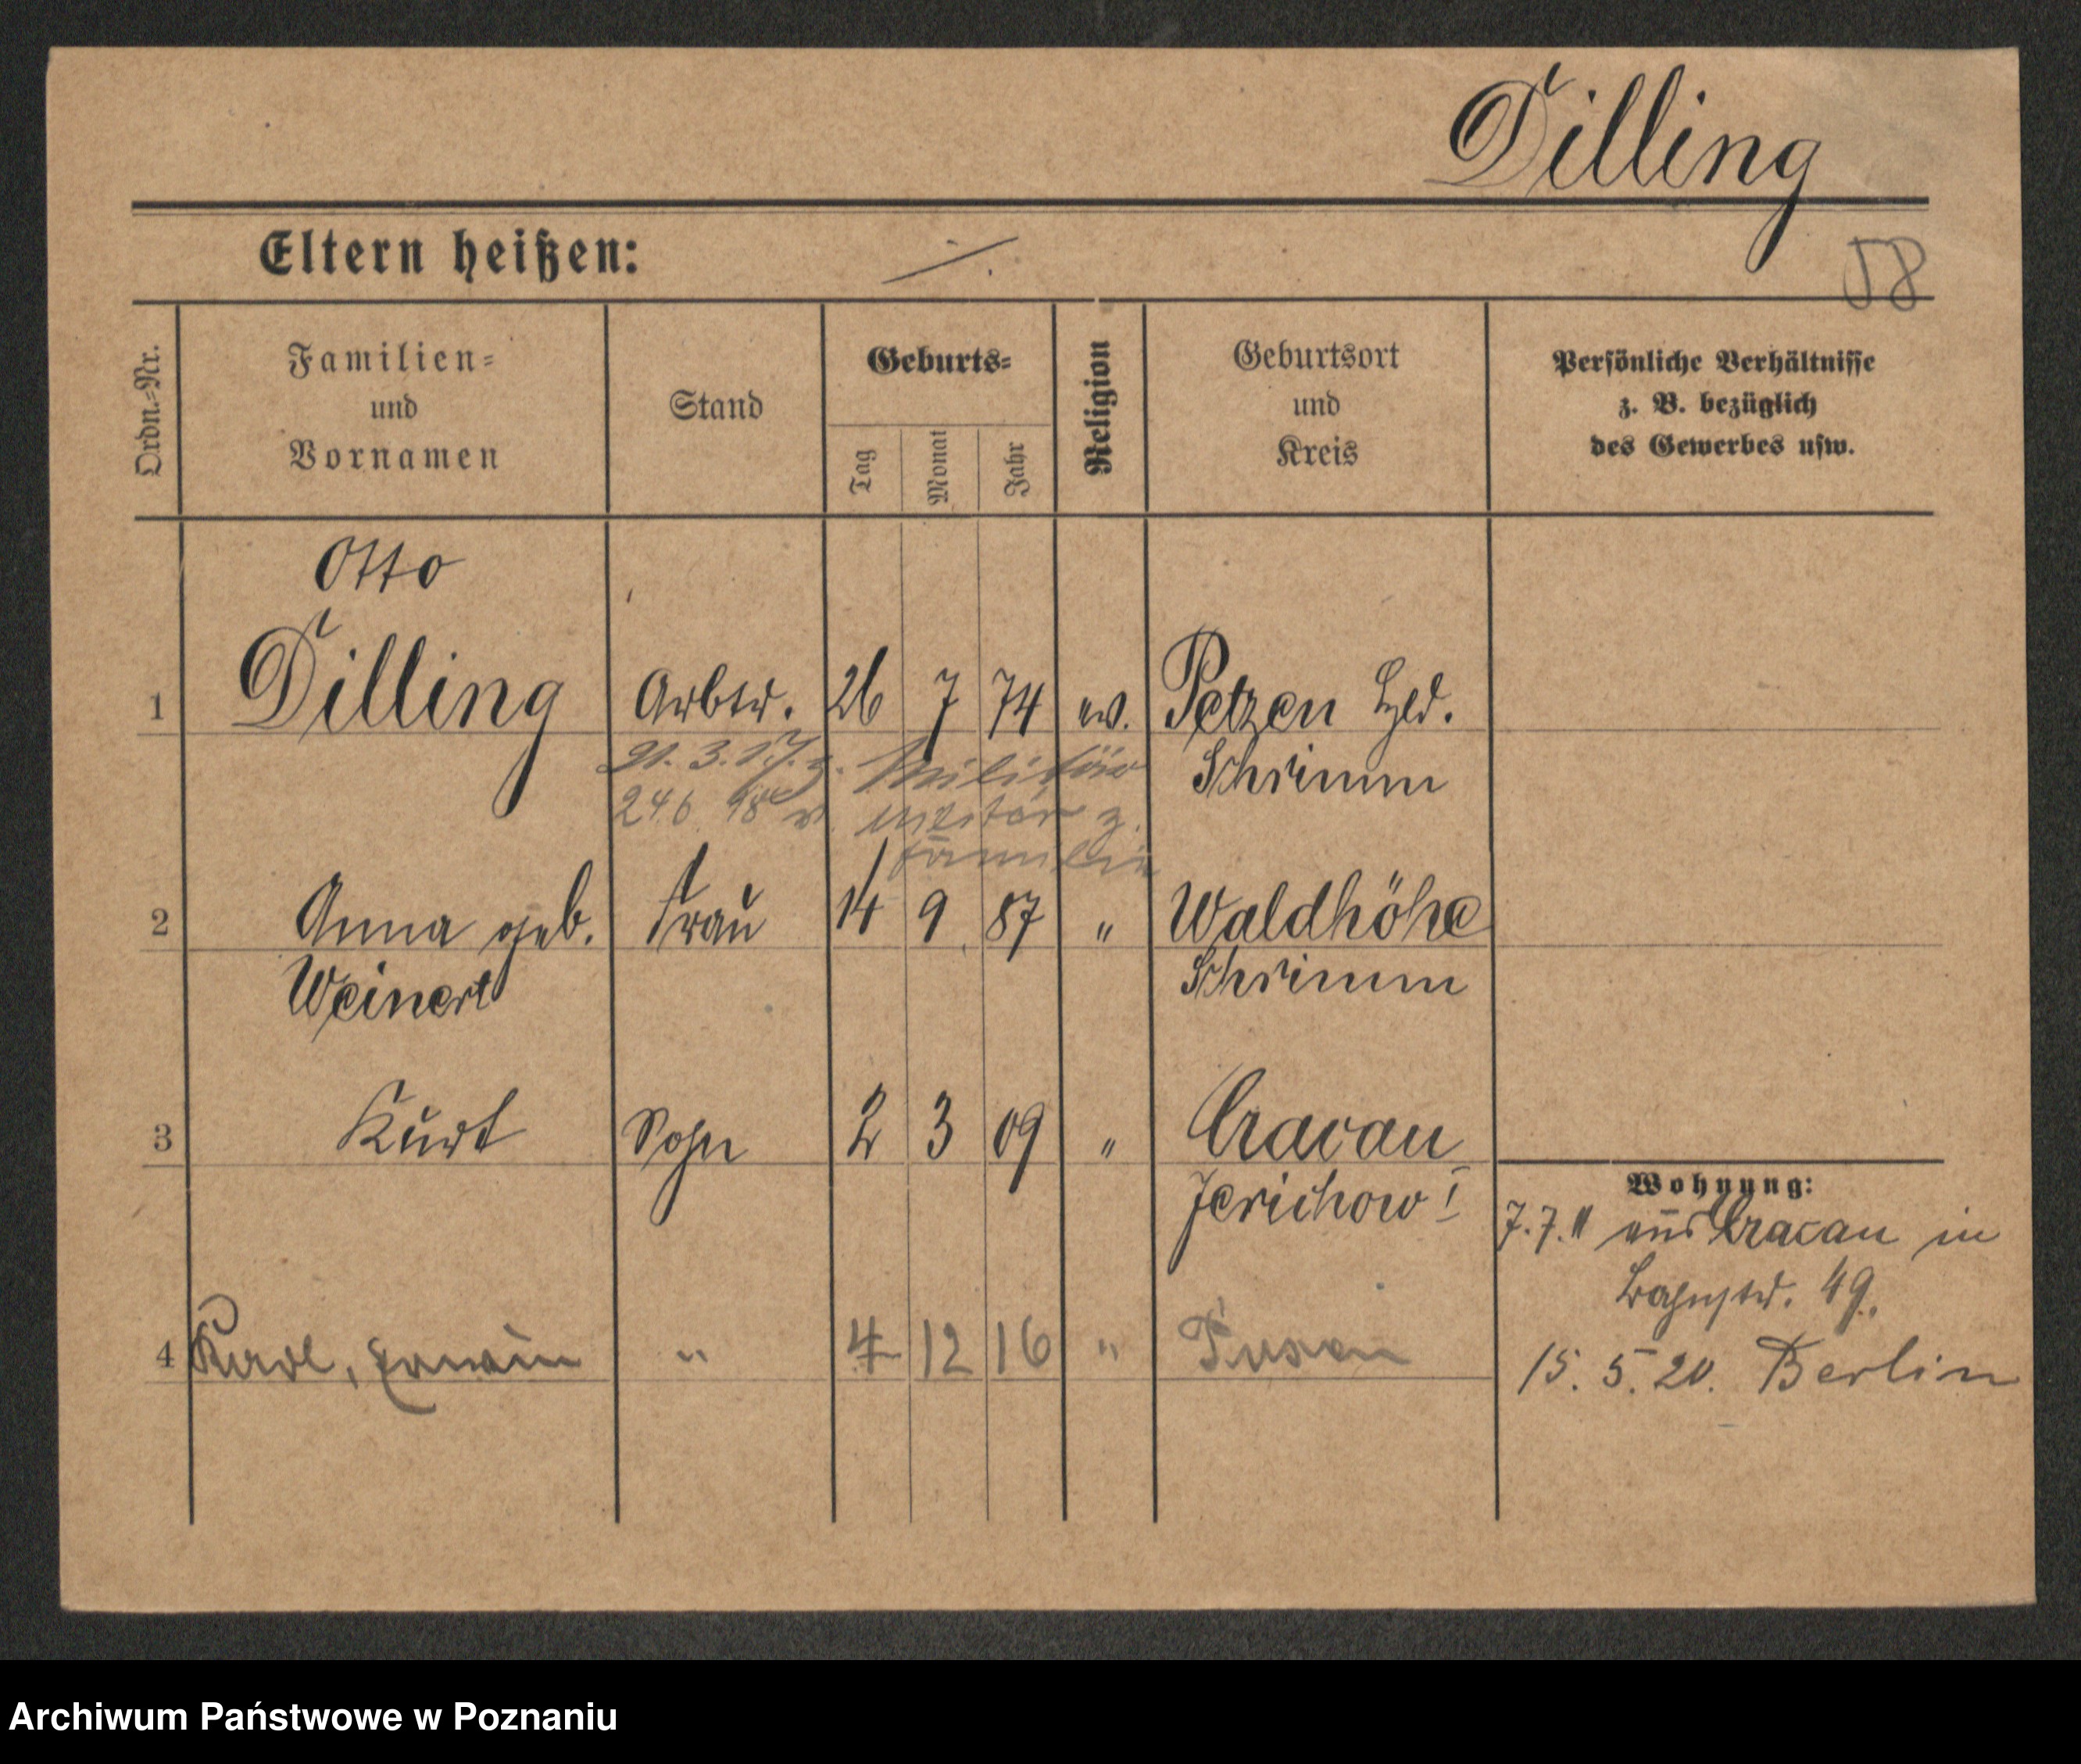 Dilling
Eltern heißen: ·/.
58
Ordn.-Nr. Familien- und Vornamen Stand Geburts- Tag Monat Jahr Religion Geburtsort und Kreis Persönliche Verhältnisse z. B. bezüglich des Gewerbes usw.
Otto
1 Dilling Arbtr. 26 7 74 ev. Petzen Hld.
21. 3. 17. z. Militär Schrimm
24 6. 18 weiter z.
Familie
2 Anna geb. Frau 14 9 87 " Waldhöhe
Weinert Schrimm
3 Kurt Sohn 2 3 09 " Cracau
Jerichow I
Wohnung:
7.7.11 aus Cracau in
Bahnstr. 49.
4 Karl, Erwin " 4 12 16 " Posen
15. 5. 20. Berlin
Archiwum Państwowe w Poznaniu